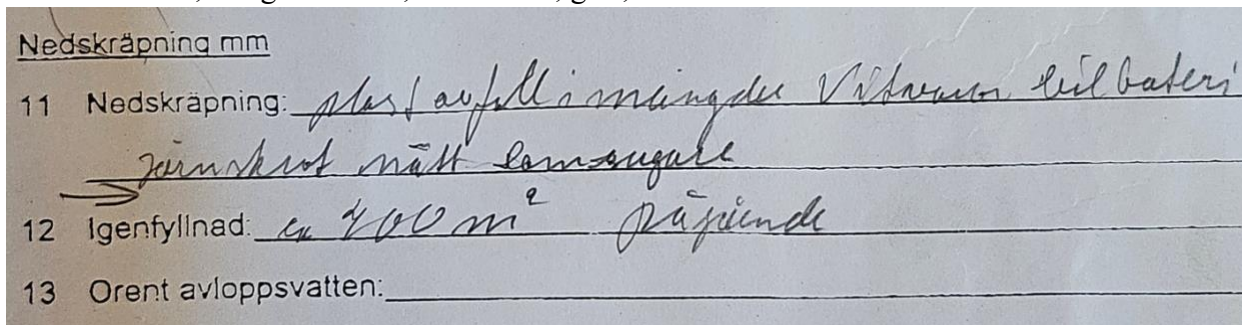 Nedskräpning mm
11 Nedskräpning: plast avfall i mängder Vitvaror bil bateri
järnskrot mått
12 Igenfyllnad: ca 400 m² pågående
13 Orent avloppsvatten: